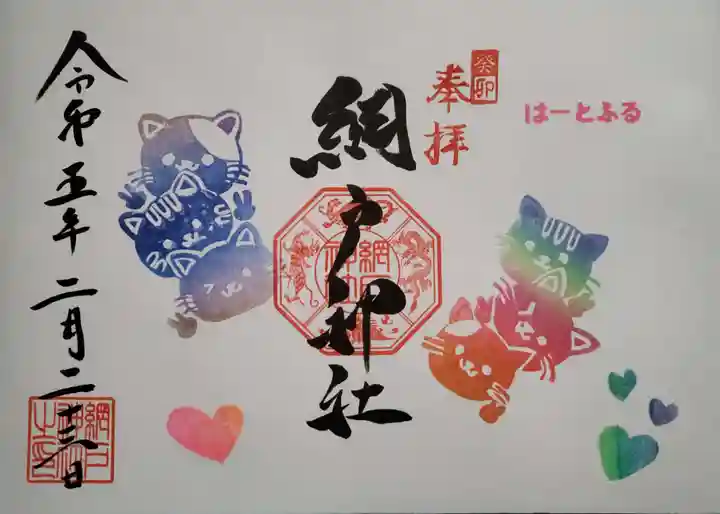 はーとふる
癸卯
奉拝
網戸神社
網戸神社
令和五年二月二十三日
網戸神社之印